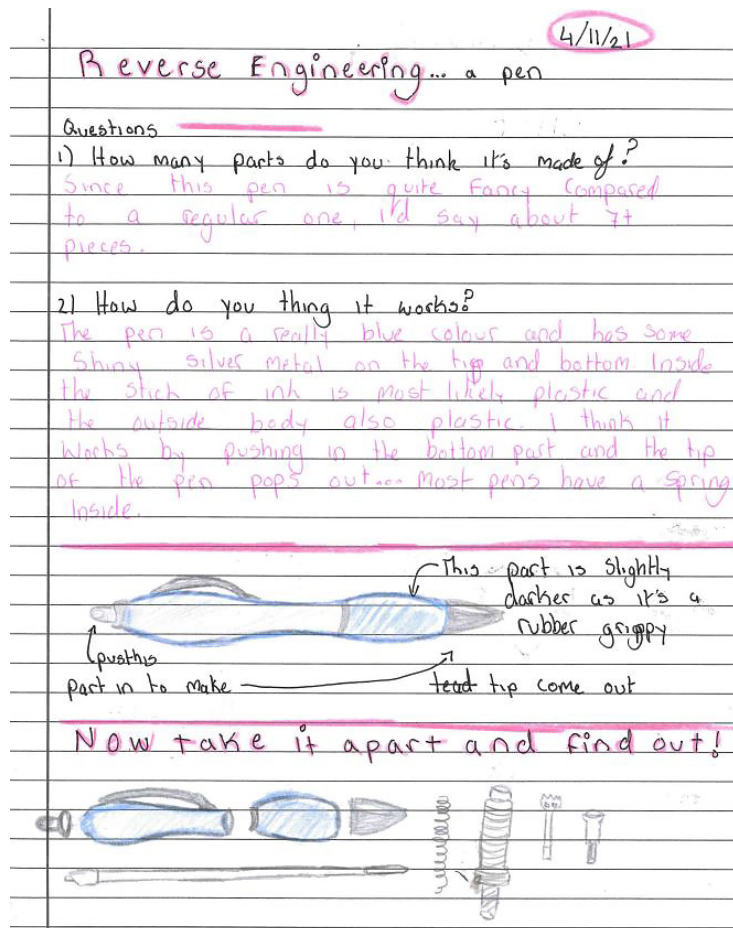 4/11/21
Reverse Engineering... a pen
Questions
1) How many parts do you think it's made of?
Since this pen is quite Fancy Compared
to a regular one, i'd say about 7+
pieces.
2) How do you thing it works?
The pen is a really blue colour and has some
Shiny silver metal on the tip and bottom. Inside
the stick of ink is most likely plastic and
the outside body also plastic. I think it
Works by pushing in the bottom part and the tip
of the pen pops out... Most pens have a spring
Inside.
This part is slightly
darker as it's a
rubber grippy
pusthis
part in to make
tead tip come out
Now take it apart and find out!